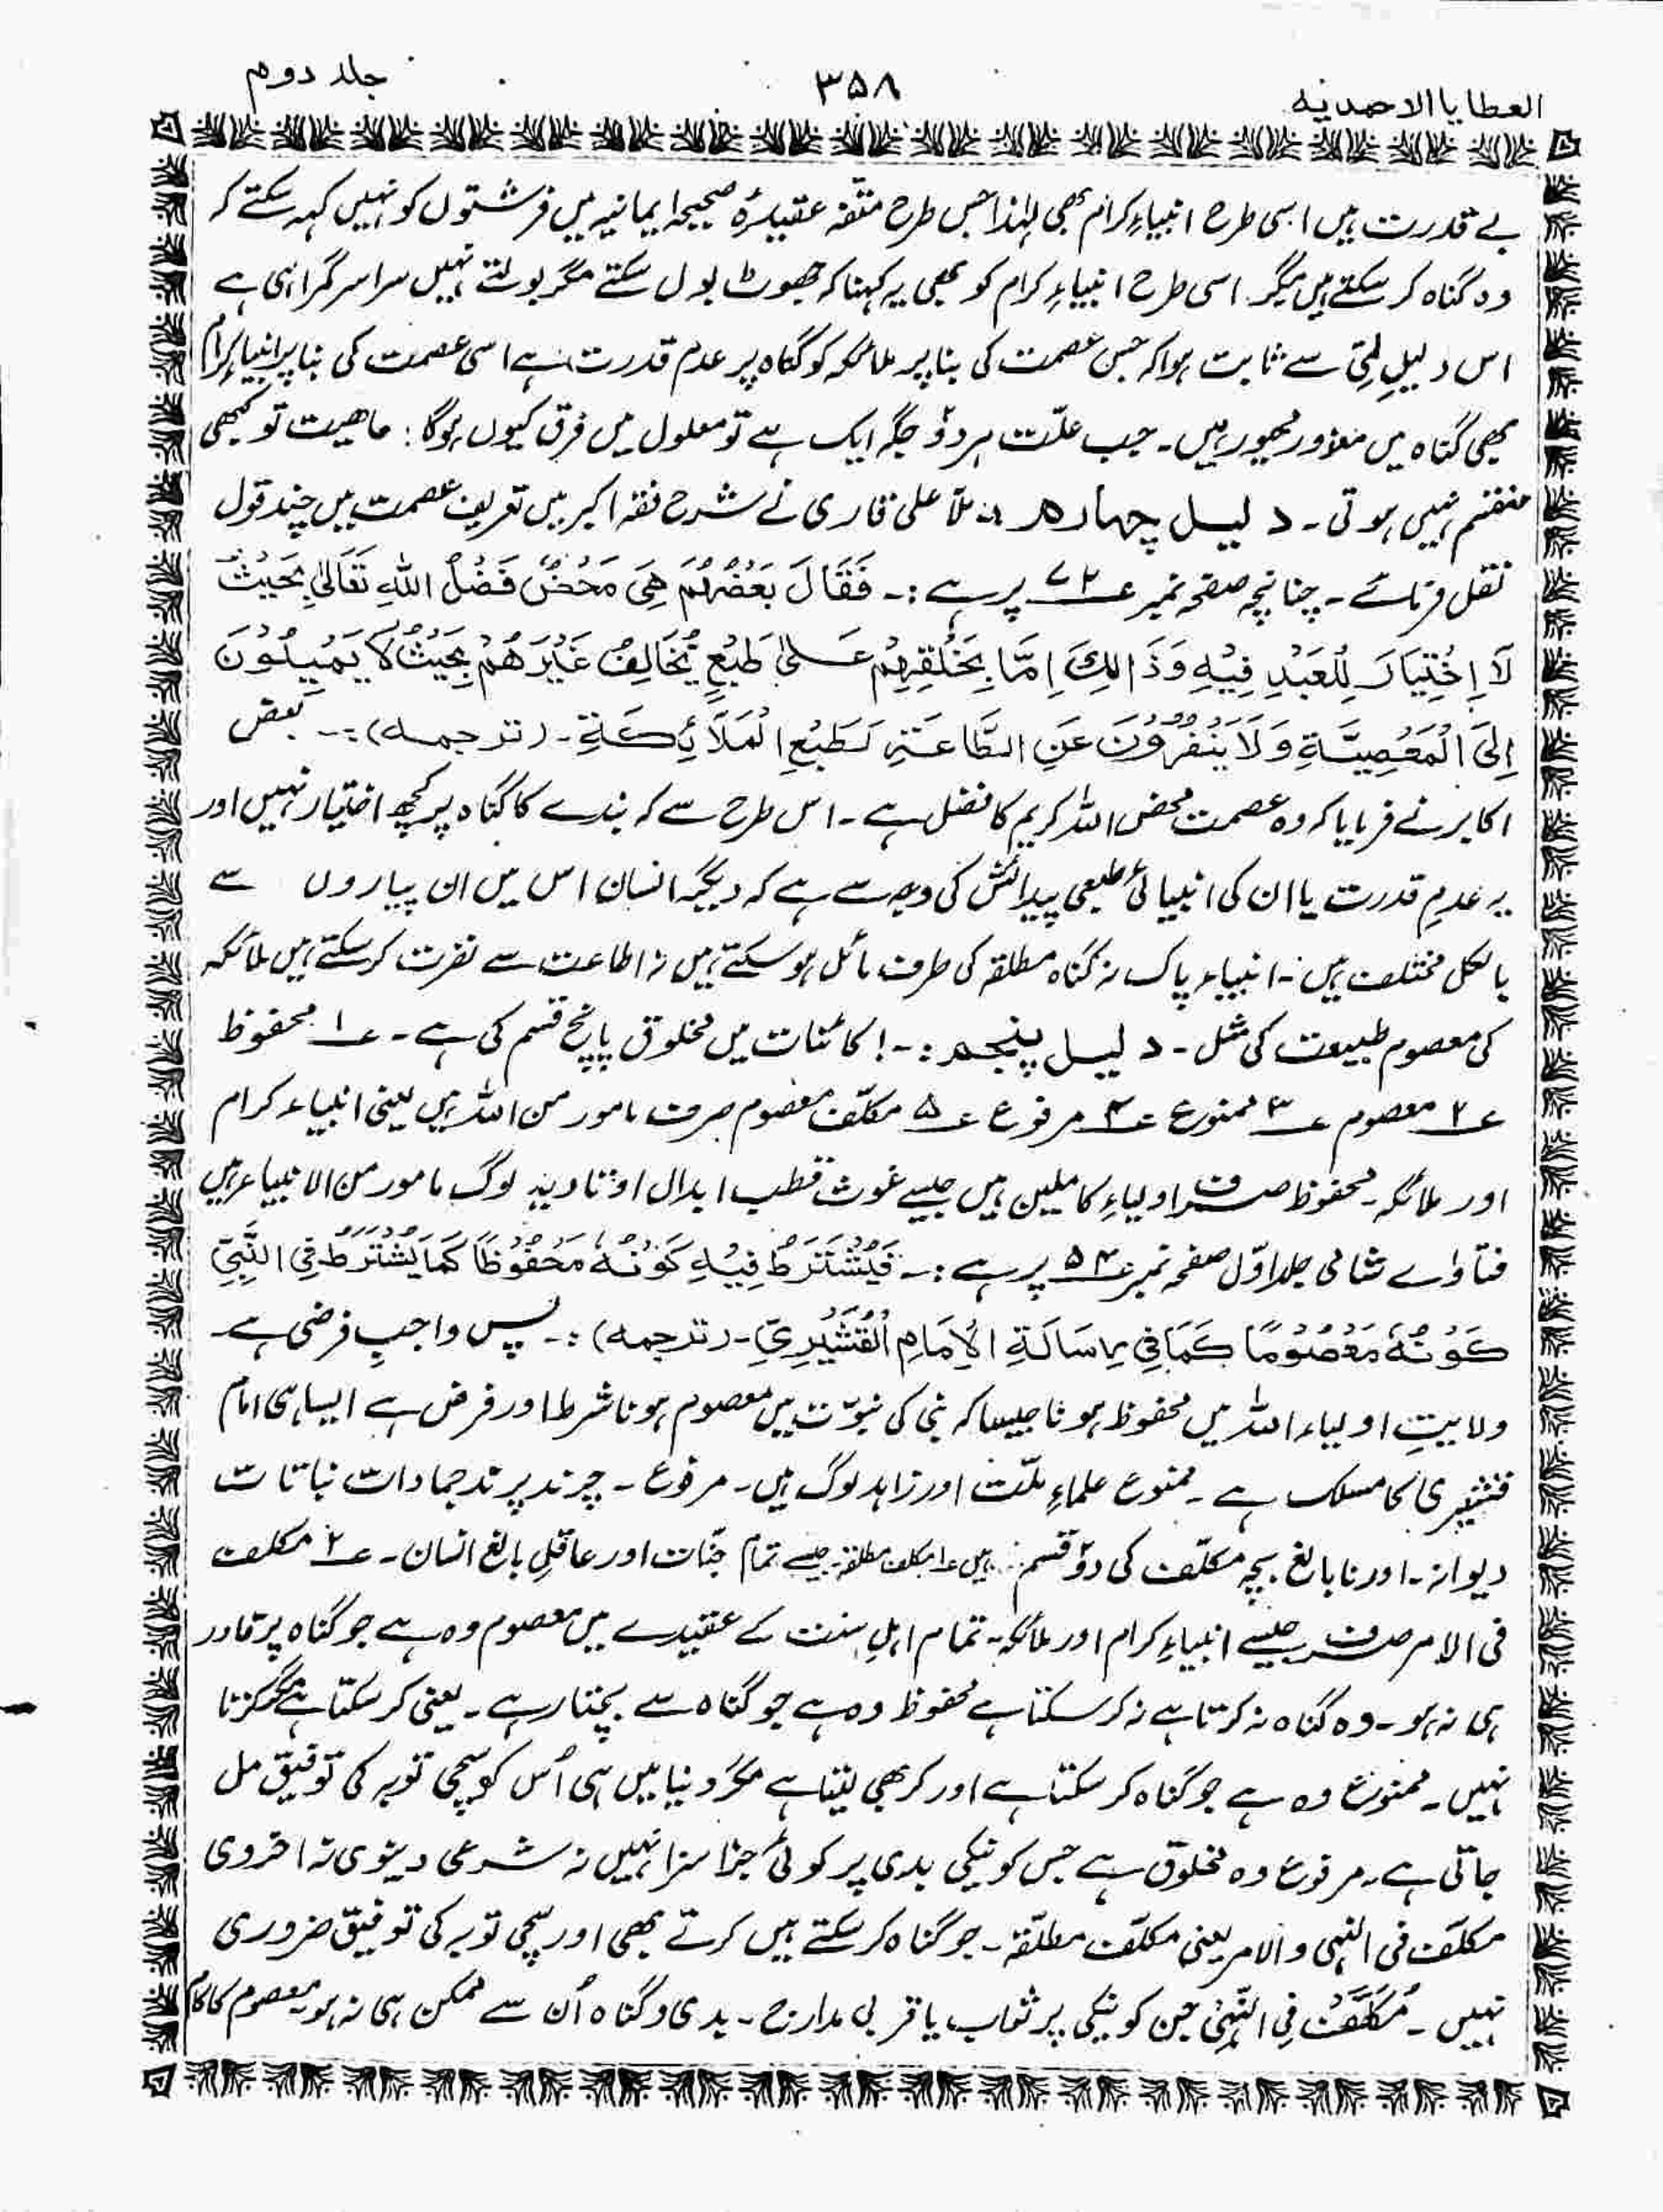 العطایا الاحمدیہ
۳۵۸
جلد دوم
بے قدرت ہیں اسی طرح انبیاءِ کرام بھی لہٰذا جس طرح متفّقہ عقیدۂ صحیحہ ایمانیہ میں فرشتوں کو نہیں کہہ سکتے کہ
وہ گناہ کر سکتے ہیں مگر اسی طرح انبیاءِ کرام کو بھی یہ کہنا کہ جھوٹ بول سکتے مگر بولتے نہیں سراسر گمراہی ہے
اس دلیلِ لِمّی سے ثابت ہوا کہ جس عصمت کی بنا پر ملائکہ کو گناہ پر عدم قدرت ہے اسی عصمت کی بنا پر انبیاءِ کرام
بھی گناہ میں معذور مجبور ہیں۔ جب علّت ہر دوؔ جگہ ایک ہے تو معلول میں فرق کیوں ہوگا؛ ماھیت تو کبھی
منقسم نہیں ہوتی۔ دلیل چہارم :۔ ملّا علی قاری نے شرح فقہ اکبر میں تعریفِ عصمت میں چند قول
نقل فرمائے۔ چنانچہ صفحہ نمبر ع۷۲ پر ہے :۔ فَقَالَ بَعْضُهُمْ هِىَ مَحْضُ فَضْلُ اللهِ تَعَالىٰ بِحَيْثُ
لَا اِخْتِيَارَ لِلْعَبْدِ فِيْهِ وَذَالِكَ اِمَّا بِخَلْقِهِمْ عَلىٰ طَبْعٍ يُخَالِفُ غَيْرَهُمْ بِحَيْثُ لَا يَمِيْلُوْنَ
اِلىَ الْمَعْصِيَّةِ وَلَا يَنْفُرُوْنَ عَنِ الطَّاعَةِ كَطَبْعِ الْمَلَائِكَةِ۔ (ترجمہ) :۔ بعض
اکابر نے فرمایا کہ وہ عصمت محض اللہ کریم کا فضل ہے۔ اس طرح سے کہ بندے کا گناہ پر کچھ اختیار نہیں اور
یہ عدمِ قدرت یا ان کی انبیائی طبعی پیدائش کی وجہ سے ہے کہ دیگر انسان اس میں ان پیاروں سے
بالکل مختلف ہیں۔ انبیاء پاک نہ گناہ مطلقہ کی طرف مائل ہو سکتے ہیں نہ اطاعت سے نفرت کر سکتے ہیں ملائکہ
کی معصوم طبیعت کی مثل۔ دلیل پنجم :۔! کائنات میں مخلوق پانچ قسم کی ہے۔ ع۱ محفوظ
ع۲ معصوم ع۳ ممنوع ع۴ مرفوع ع۵ مکلّف معصوم صرف مامور من اللہ ہیں یعنی انبیاء کرام
اور ملائکہ۔ محفوظ صرف اولیاءِ کاملین ہیں جیسے غوث قطب ابدال اوتاد یہ لوگ مامور من الانبیاء ہیں
فتاواے شامی جلد اوّل صفحہ نمبر ع۵۴ پر ہے :۔ فَيُشْتَرَطُ فِيْهِ كَوْنُهٗ مَحْفُوْظًا كَمَا يُشْتَرَطُ فِى النَّبِىِّ
كَوْنُهٗ مَعْصُوْمًا كَمَا فِى رِسَالَةِ الْاِمَامِ الْقُشَيْرِىِّ۔ (ترجمہ) :۔ پس واجبِ فرضی ہے
ولایتِ اولیاء اللہ میں محفوظ ہونا جیسا کہ نبی کی نبوّت میں معصوم ہونا شرط اور فرض ہے ایسا ہی امام
قشیری کا مسلک ہے۔ ممنوع علماءِ ملّت اور زاہد لوگ ہیں۔ مرفوع۔ چرند پرند جمادات نباتات
دیوانہ۔ اور نابالغ بچہ مکلّف کی دوؔ قسم ہیں ع۱ مکلف مطلقہ۔ جیسے تمام جنّات اور عاقلِ بالغ انسان۔ ع۲ مکلف
فی الامر صرف جیسے انبیاءِ کرام اور ملائکہ۔ تمام اہلِ سنت کے عقیدے میں معصوم وہ ہے جو گناہ پر قادر
ہی نہ ہو۔ وہ گناہ نہ کرتا ہے نہ کر سکتا ہے محفوظ وہ ہے جو گناہ سے بچتا رہے۔ یعنی کر سکتا ہے مگر کرتا
نہیں۔ ممنوع وہ ہے جو گناہ کر سکتا ہے اور کر بھی لیتا ہے مگر دنیا میں ہی اُس کو سچی توبہ کی توفیق مل
جاتی ہے۔ مرفوع وہ مخلوق ہے جس کو نیکی بدی پر کوئی جزا سزا نہیں نہ شرعی دینوی نہ اخروی
مکلّف فی النہی والامر یعنی مکلّف مطلقہ۔ جو گناہ کر سکتے ہیں کرتے بھی اور سچی توبہ کی توفیق ضروری
نہیں۔ مُکَلَّفْ فِی النَّہْیْ جن کو نیکی پر ثواب یا قربی مدارج۔ بدی وگناہ اُن سے ممکن ہی نہ ہو۔ معصوم کا کام